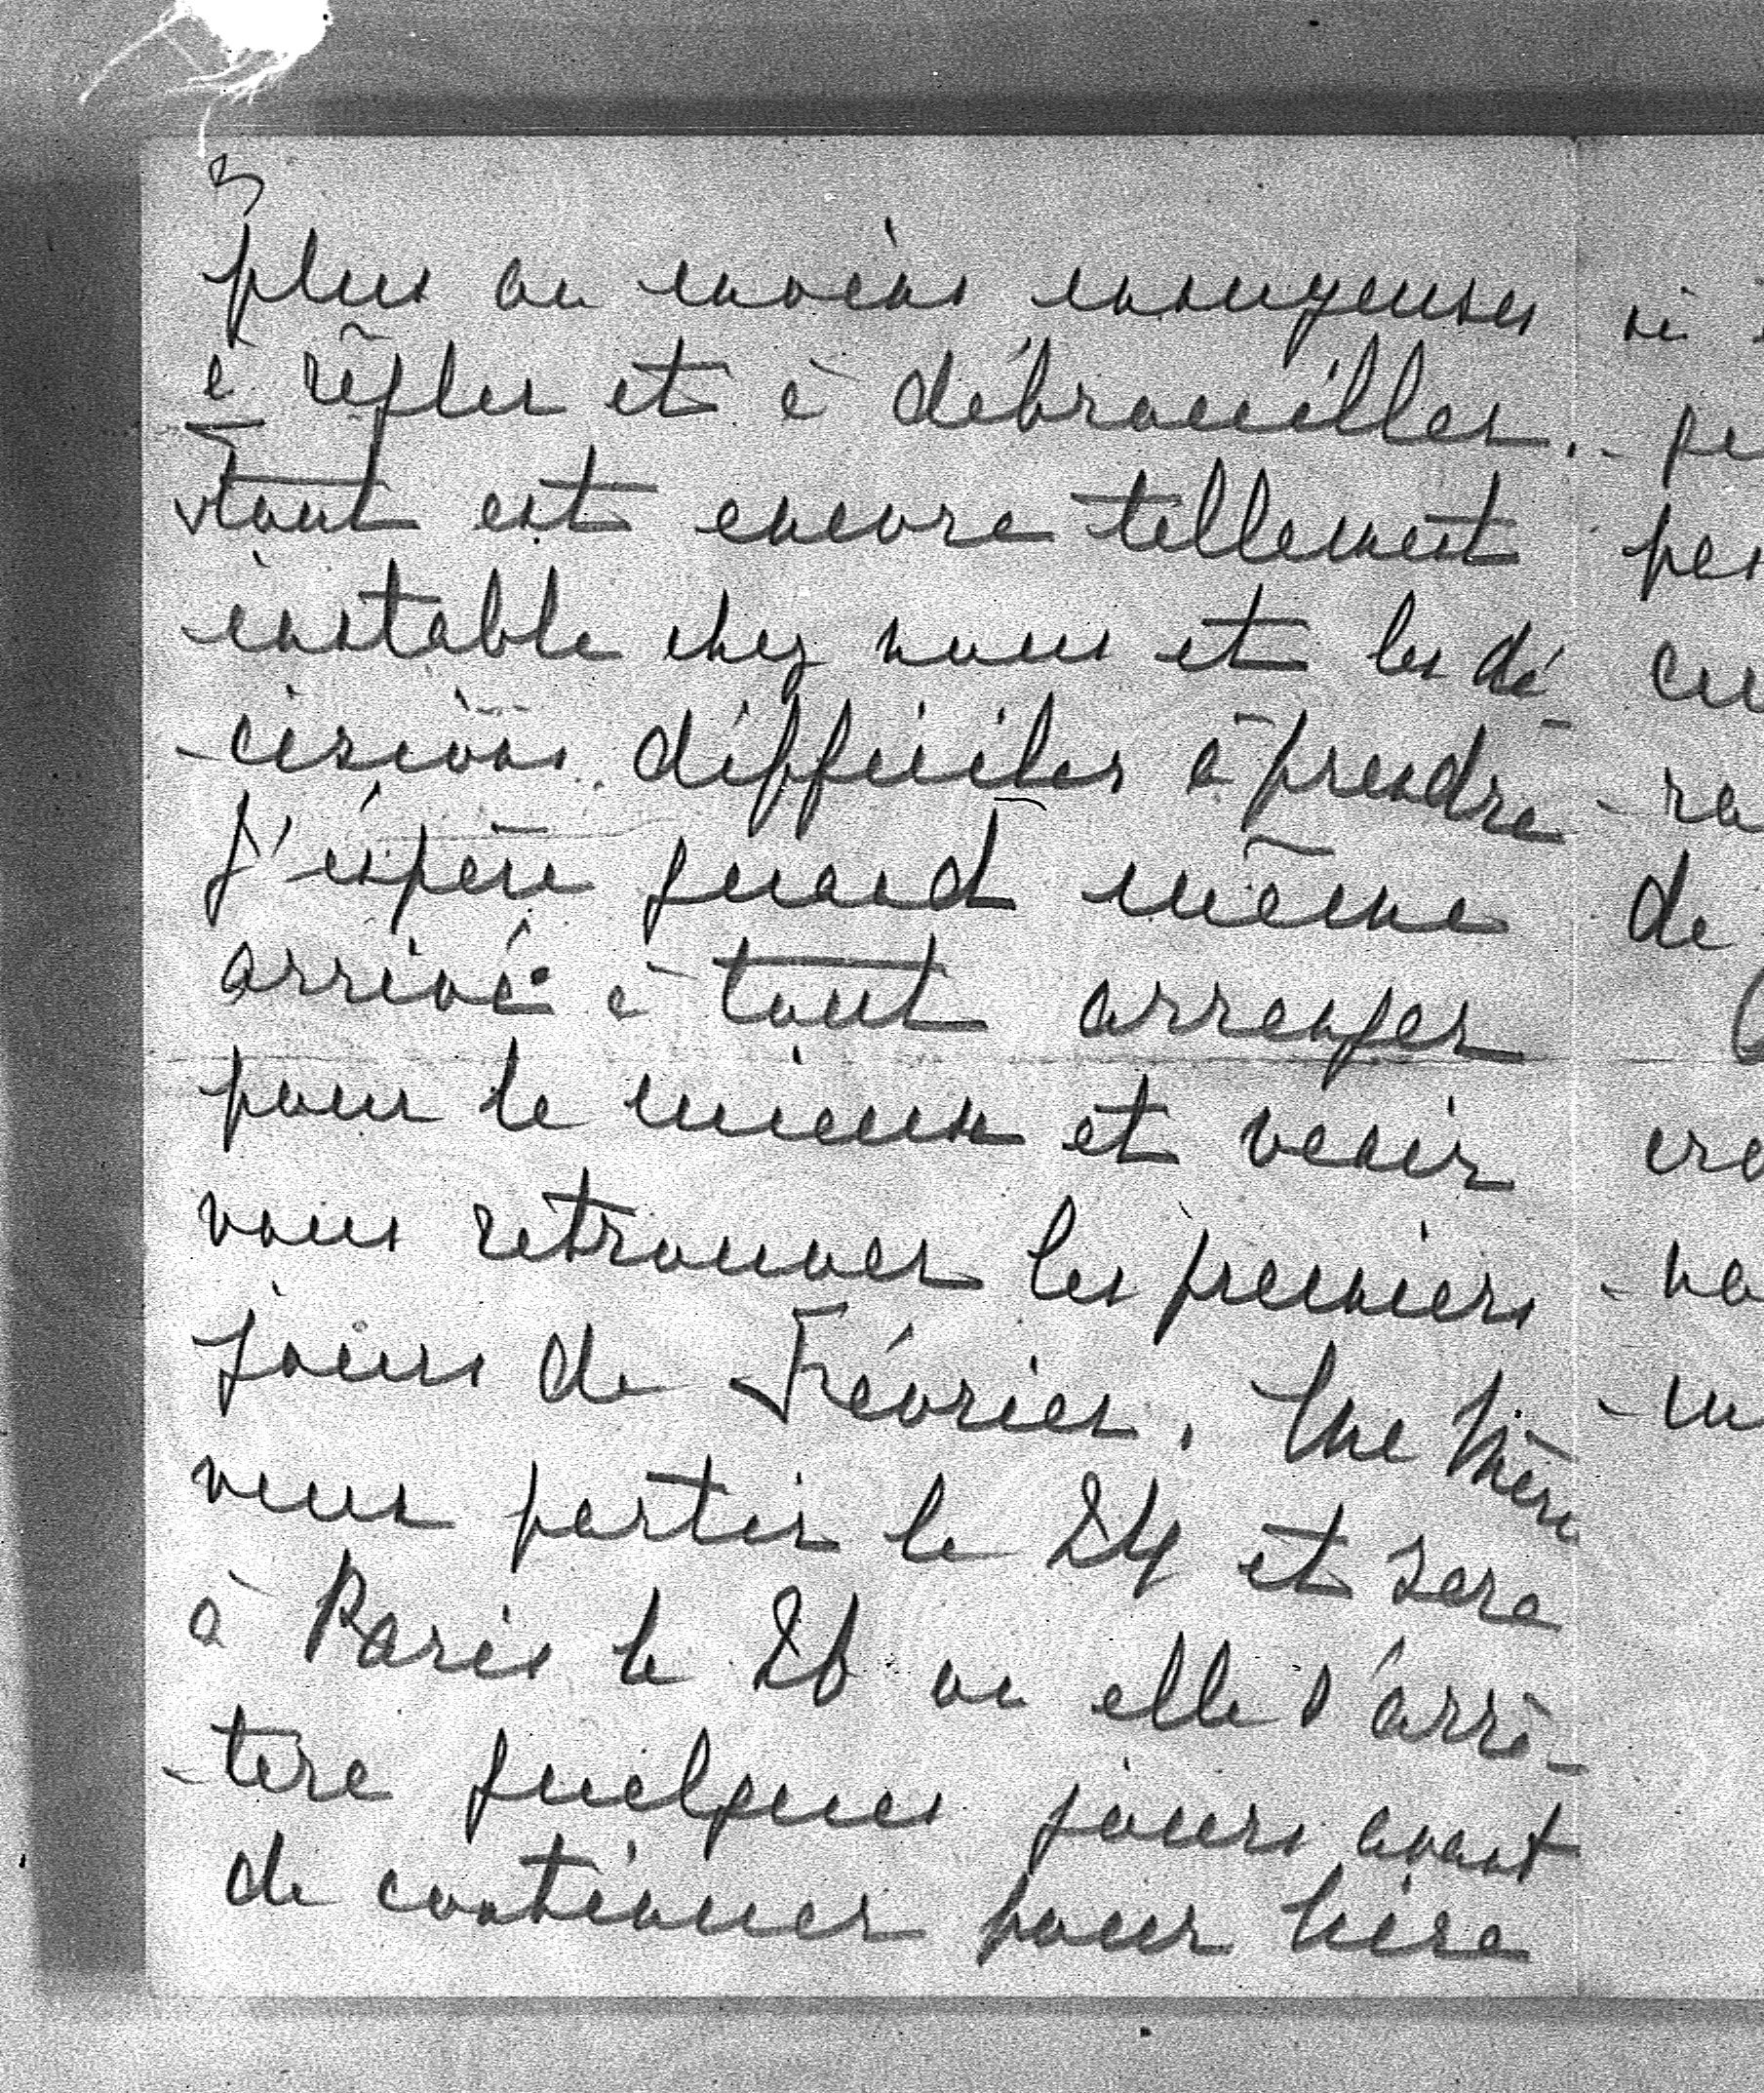 3
plus ou moins ennuyeuses
à régler et à débrouiller.
Tout est encore tellement
instable chez nous et les dé
-cisions difficiles à prendre
J'éspère quand même
arrivé à tout arranger
pour le mieux et venir
vous retrouver les premiers
jours de Février. Une Mère
veut partir le 24 et sera
à Paris le 26 ou elle s'arrê-
-tera quelques jours avant
de continuer pour
si
pe
de